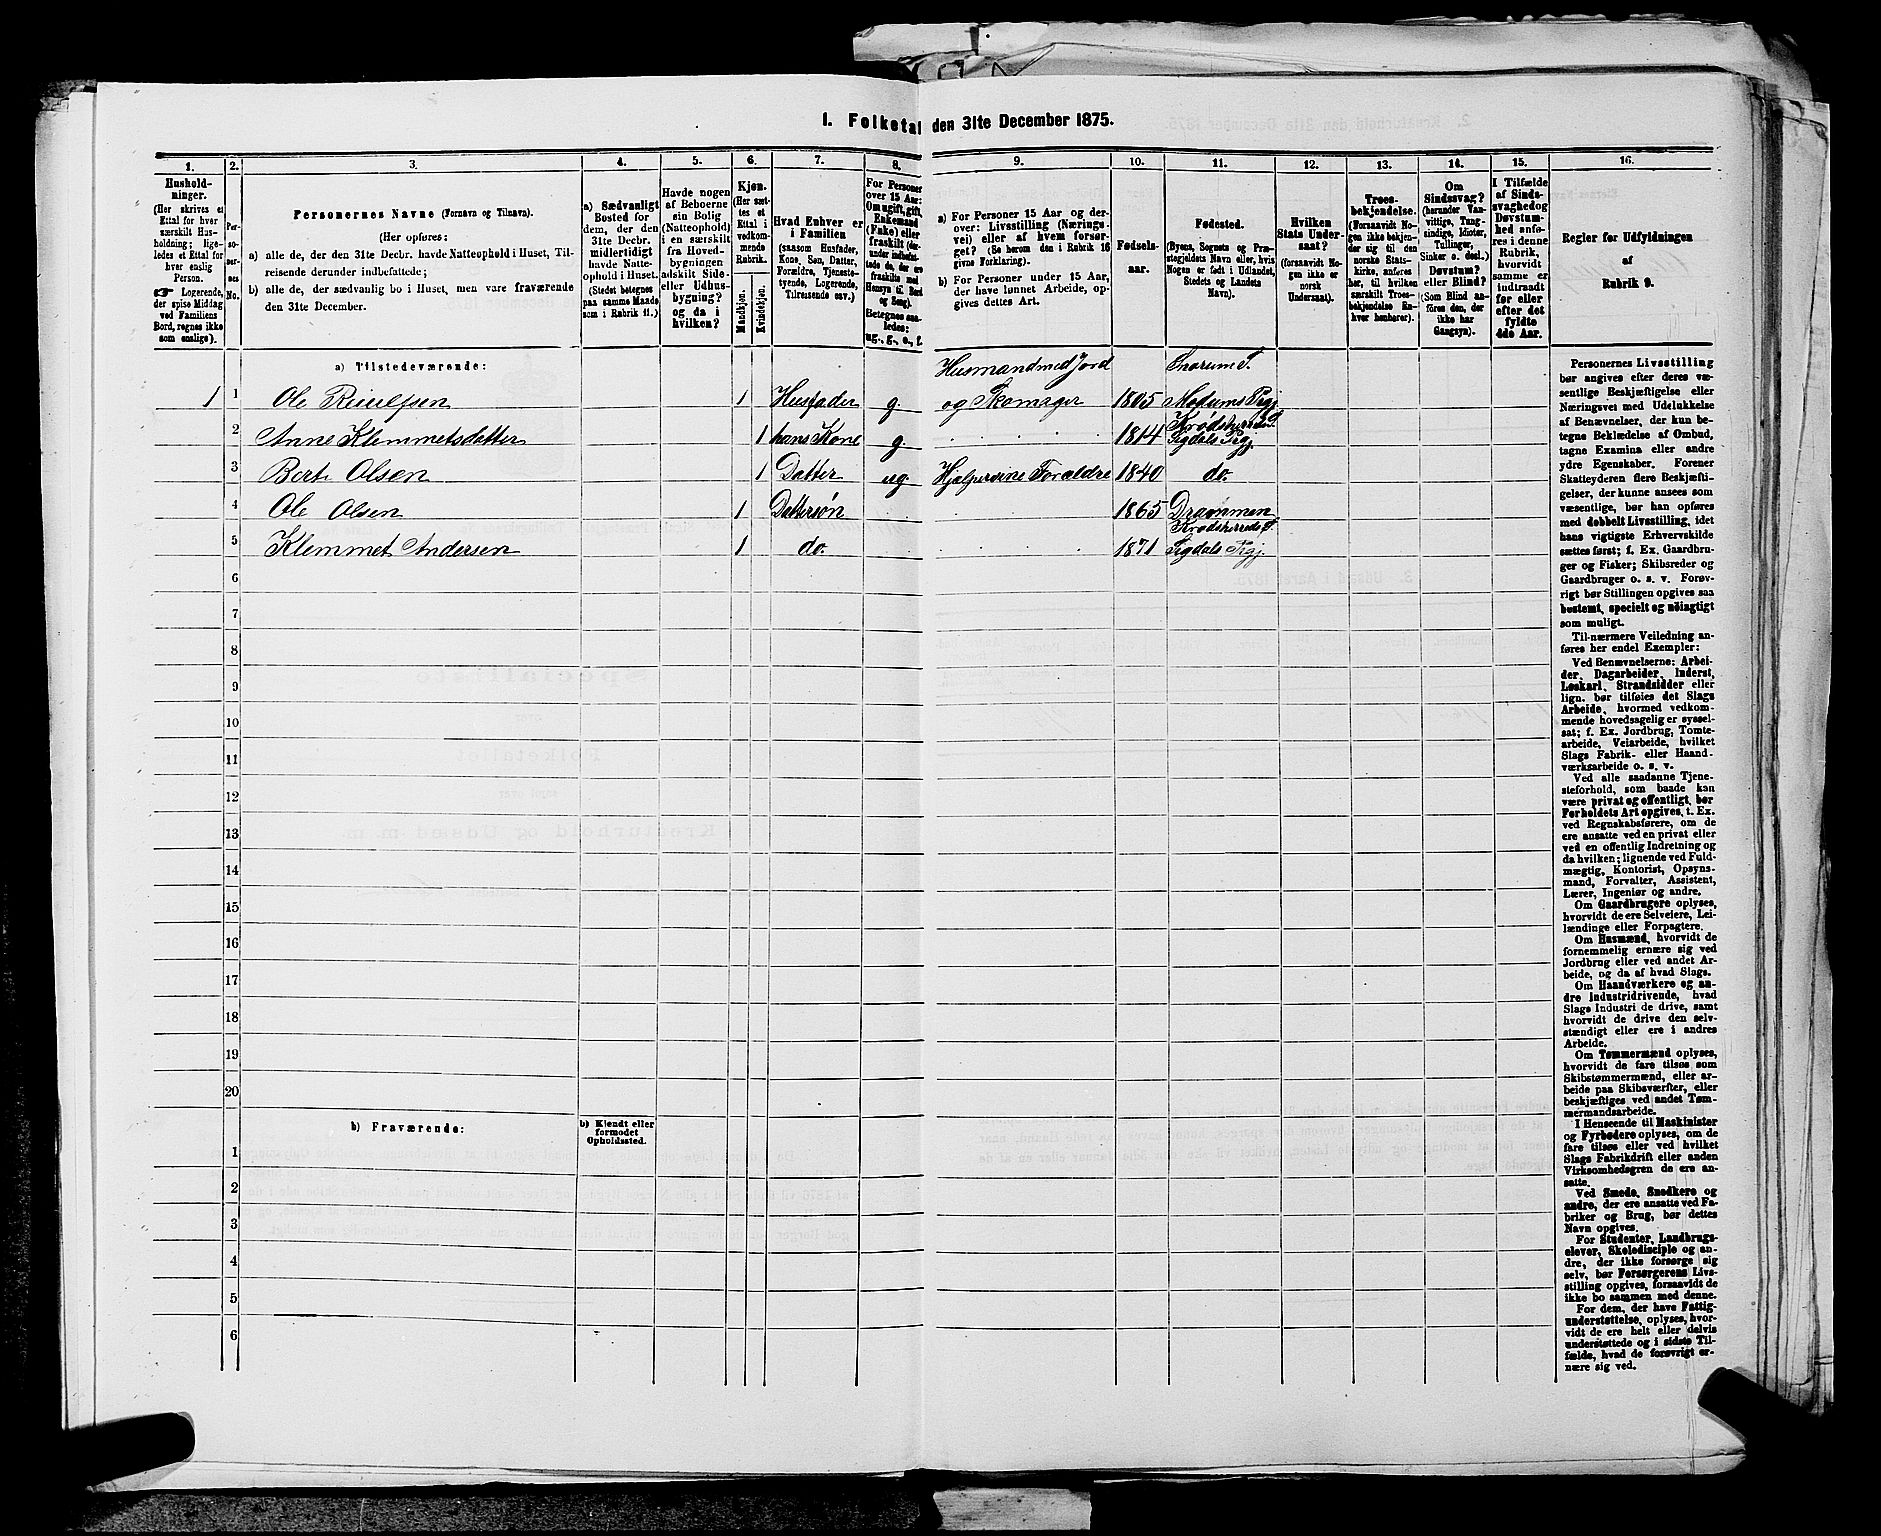 1. Folketal den 31te December 1875.
1. 2. 3. 4. 5. 6. 7. 8. 9. 10. 11. 12. 13. 14. 15. 16.
Hushold-
ninger.
(Her skrives et
Ettal for hver
særskilt Hus-
holdning; lige-
ledes et Ettal for
hver enslig
Person.
☞ Logerende,
der spise Middag
ved Familiens
Bord, regnes ikke
som enslige).
Per-
so-
ner-
nes
No.
Personernes Navne (Fornavn og Tilnavn).
(Her opføres:
a) alle de, der den 31te Decbr. havde Natteophold i Huset, Til-
reisende derunder indbefattede;
b) alle de, der sædvanlig bo i Huset, men vare fraværende
den 31te December.
a) Sædvanligt
Bosted for
dem, der den
31te Decbr.
midlertidigt
havde Natte-
ophold i Huset.
(Stedet betegnes
paa samme Maade
som i Rubrik 11.)
Havde nogen
af Beboerne
sin Bolig
(Natteophold)
i en særskilt
fra Hoved-
bygningen
adskilt Side-
eller Udhus-
bygning?
og da i
hvilken?
Kjøn.
(Her sæt-
tes et
Ettal i
vedkom-
mende
Rubrik.
Mandkjøn.
Kvindekjøn.
Hvad Enhver er
i Familien
(saasom Husfader,
Kone, Søn, Datter,
Forældre, Tjeneste-
tyende, Logerende,
Tilreisende osv.)
For Personer
over 15 Aar:
Om ugift, gift,
Enkemand
(Enke) eller
fraskilt
Betegnes saa-
ledes:
ug., g., e., f.
a) For Personer 15 Aar og der-
over: Livsstilling (Nærings-
vei) eller af hvem forsør-
get? (Se herom den i Rubrik 16
givne Forklaring).
b) For Personer under 15 Aar,
der have lønnet Arbeide, op-
gives dettes Art.
Fødsels-
aar.
Fødested.
(Byens, Sognets og Præ-
stegjeldets Navn eller, hvis
Nogen er født i Udlandet,
Stedets og Landets
Navn).
Hvilken
Stats Under-
saat?
(forsaavidt No-
gen ikke er
norsk
Undersaat).
Troes-
bekjendelse.
(Forsaavidt No-
gen ikke bekjen-
der sig til den
norske Stats-
kirke, anføres
her, til hvilken
særskilt Troes-
bekjendelse En-
hver henhører).
Om
Sindssvag?
(herunder Van-
vittige, Tung-
sindige, Idioter,
Tullinger,
Sinker o. desl.)
Døvstum?
eller Blind?
(Som Blind an-
føres den, der
ikke har
Gangsyn).
I Tilfælde
af Sinds-
svaghed og
Døvstum-
hed anfø-
res i denne
Rubrik,
hvorvidt
samme er
indtraadt
før eller
efter det
fyldte
4de Aar.
Regler for Udfyldningen
af
Rubrik 9.
a) Tilstedeværende:
Husmand med Jord Snarum S.
1 1 Ole Reiulfsen 1 Husfader g. og Skomager 1805 Modums Prgj.
Krødsherreds S.
2 Anne Klemmetsdatter 1 hans Kone g 1814 Sigdals Prgj.
3 Berte Olsen 1 Datter ug. Hjælper sine Forældre 1840 do.
4 Ole Olsen 1 Dattersøn 1865 Drammen
Krødsherreds S.
5 Klemmet Andersen 1 do. 1871 Sigdals Prgj.
6
7
8
9
10
11
12
13
14
15
16
17
18
19
20
b) Fraværende:
b) Kjendt eller
formodet
Opholdssted.
1
2
3
4
5
6
Personernes Livsstilling
bør angives efter deres væ-
sentlige Beskjæftigelse eller
Næringsvei med Udelukkelse
af Benævnelser, der kun be-
tegne Beklædelse af Ombud,
tagne Examina eller andre
ydre Egenskaber. Forener
Skatteyderen flere Beskjæfti-
gelser, der kunne ansees som
væsentlige, bør han opføres
med dobbelt Livsstilling, idet
hans vigtigste Erhvervskilde
sættes først; f. Ex. Gaardbru-
ger og Fisker; Skibsreder og
Gaardbruger o. s. v. Forøv-
rigt bør Stillingen opgives saa
bestemt, specielt og nöiagtigt
som muligt.
Til nærmere Veiledning an-
føres her endel Exempler:
Ved Benævnelserne: Arbei-
der, Dagarbeider, Inderst,
Løskarl, Strandsidder eller
lign. bør tilføies det Slags
Arbeide, hvormed vedkom-
mende hovedsagelig er syssel-
sat; f. Ex. Jordbrug, Tomte-
arbeide, Veiarbeide, hvilket
Slags Fabrik- eller Haand-
værksarbeide o. s. v.
Ved alle saadanne Tjene-
steforhold, som baade kan
være privat og offentligt, bør
Forholdets Art opgives, t. Ex.
ved Regnskabsførere, om de
ere ansatte ved en privat eller
ved en offentlig Indretning og
da hvilken; lignende ved Fuld-
mægtig, Kontorist, Opsyns-
mand, Forvalter, Assistent,
Lærer, Ingeniør og andre.
Om Gaardbrugere oplyses,
hvorvidt de ere Selveiere, Lei-
lændinge eller Forpagtere.
Om Husmænd, hvorvidt de
fornemmelig ernære sig ved
Jordbrug eller ved andet Ar-
beide, og da af hvad Slags.
Om Haandværkere og an-
dre Industridrivende, hvad
Slags Industri de drive, samt
hvorvidt de drive den selv-
stændigt eller ere i andres
Arbeide.
Om Tømmermænd oplyses,
hvorvidt de fare tilsøs som
Skibstømmermænd, eller ar-
beide paa Skibsværfter, eller
beskjæftiges ved andet Tøm-
mermandsarbeide.
I Henseende til Maskinister
og Fyrbødere oplyses, om de
fare tilsøs eller ved hvilket
Slags Fabrikdrift eller anden
Virksomhedsgren de ere an-
satte.
Ved Smede, Snedkere og
andre, der ere ansatte ved Fa-
briker og Brug, bør dettes
Navn opgives.
For Studenter, Landbrugs-
elever, Skoledisciple og an-
dre, der ikke forsørge sig
selv, bør Forsørgerens Livs-
stilling opgives, forsaavidt de
ikke bo sammen med denne.
For dem, der have Fattig-
understøttelse, oplyses, hvor-
vidt de ere helt eller delvis
understøttede og i sidste Til-
fælde, hvad de forøvrigt er-
nære sig ved.